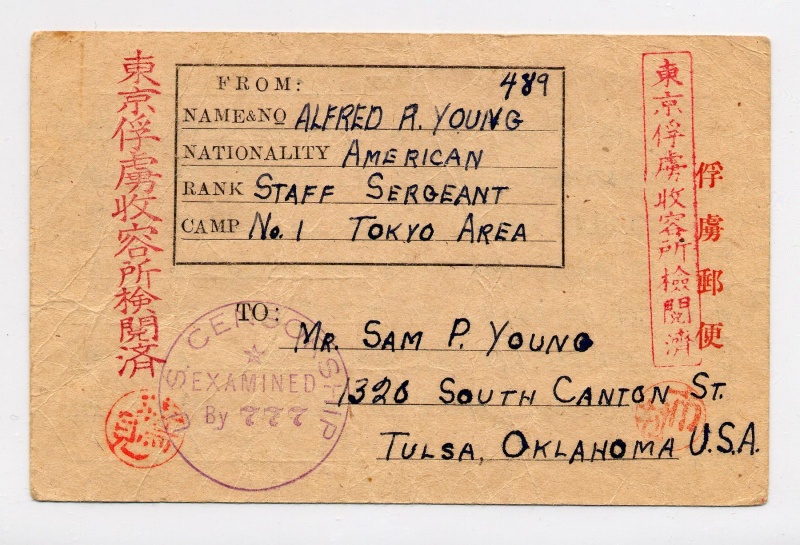 東京俘虜收容所検閲済
FROM: 489
NAME&NO ALFRED R. YOUNG
NATIONALITY AMERICAN
RANK STAFF SERGEANT
CAMP No. 1 TOKYO AREA
東京俘虜收容所檢閲濟
俘虜郵便
TO:
MR. SAM P. YOUNG
1320 SOUTH CANTON ST.
TULSA, OKLAHOMA U.S.A.
U.S. CENSORSHIP
EXAMINED
By 777